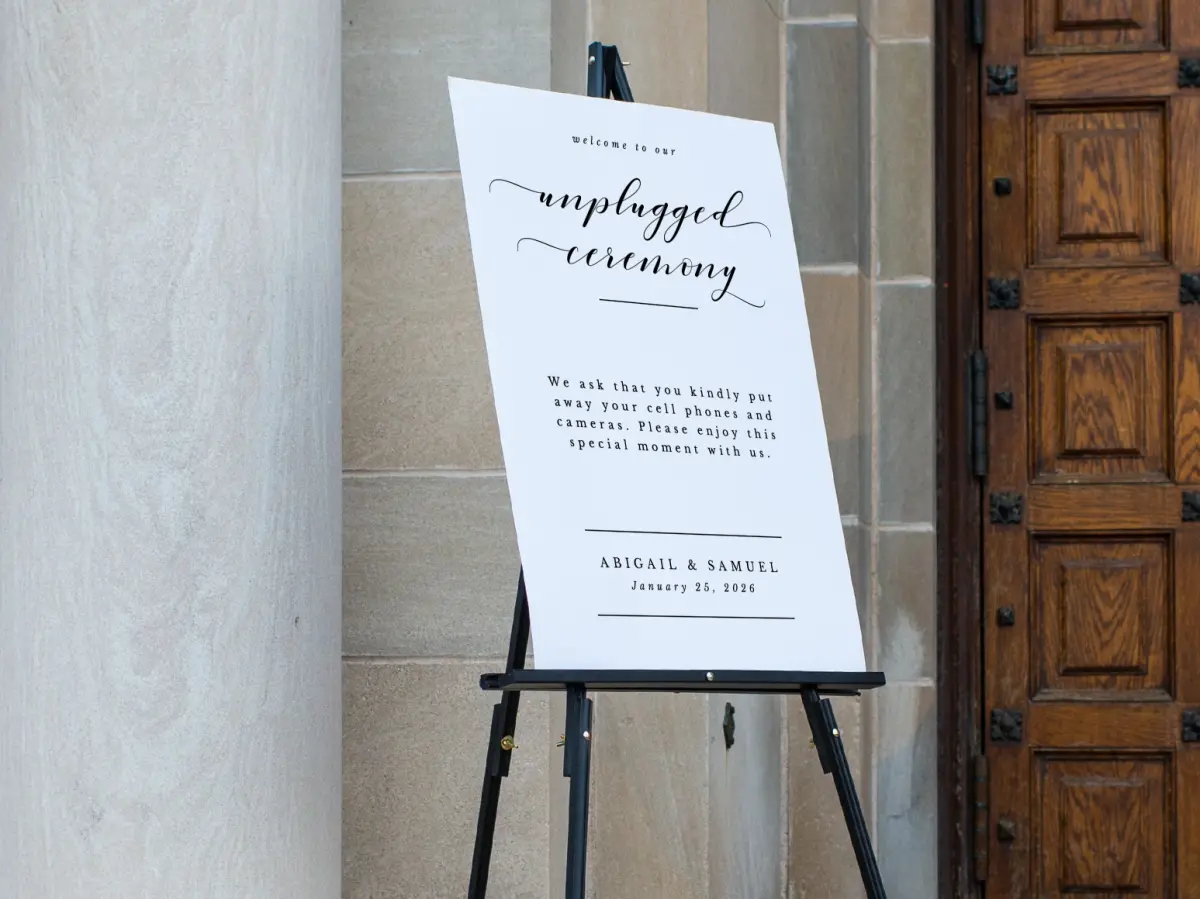 welcome to our
unplugged
ceremony
We ask that you kindly put
away your cell phones and
cameras. Please enjoy this
special moment with us.
ABIGAIL & SAMUEL
January 25, 2026